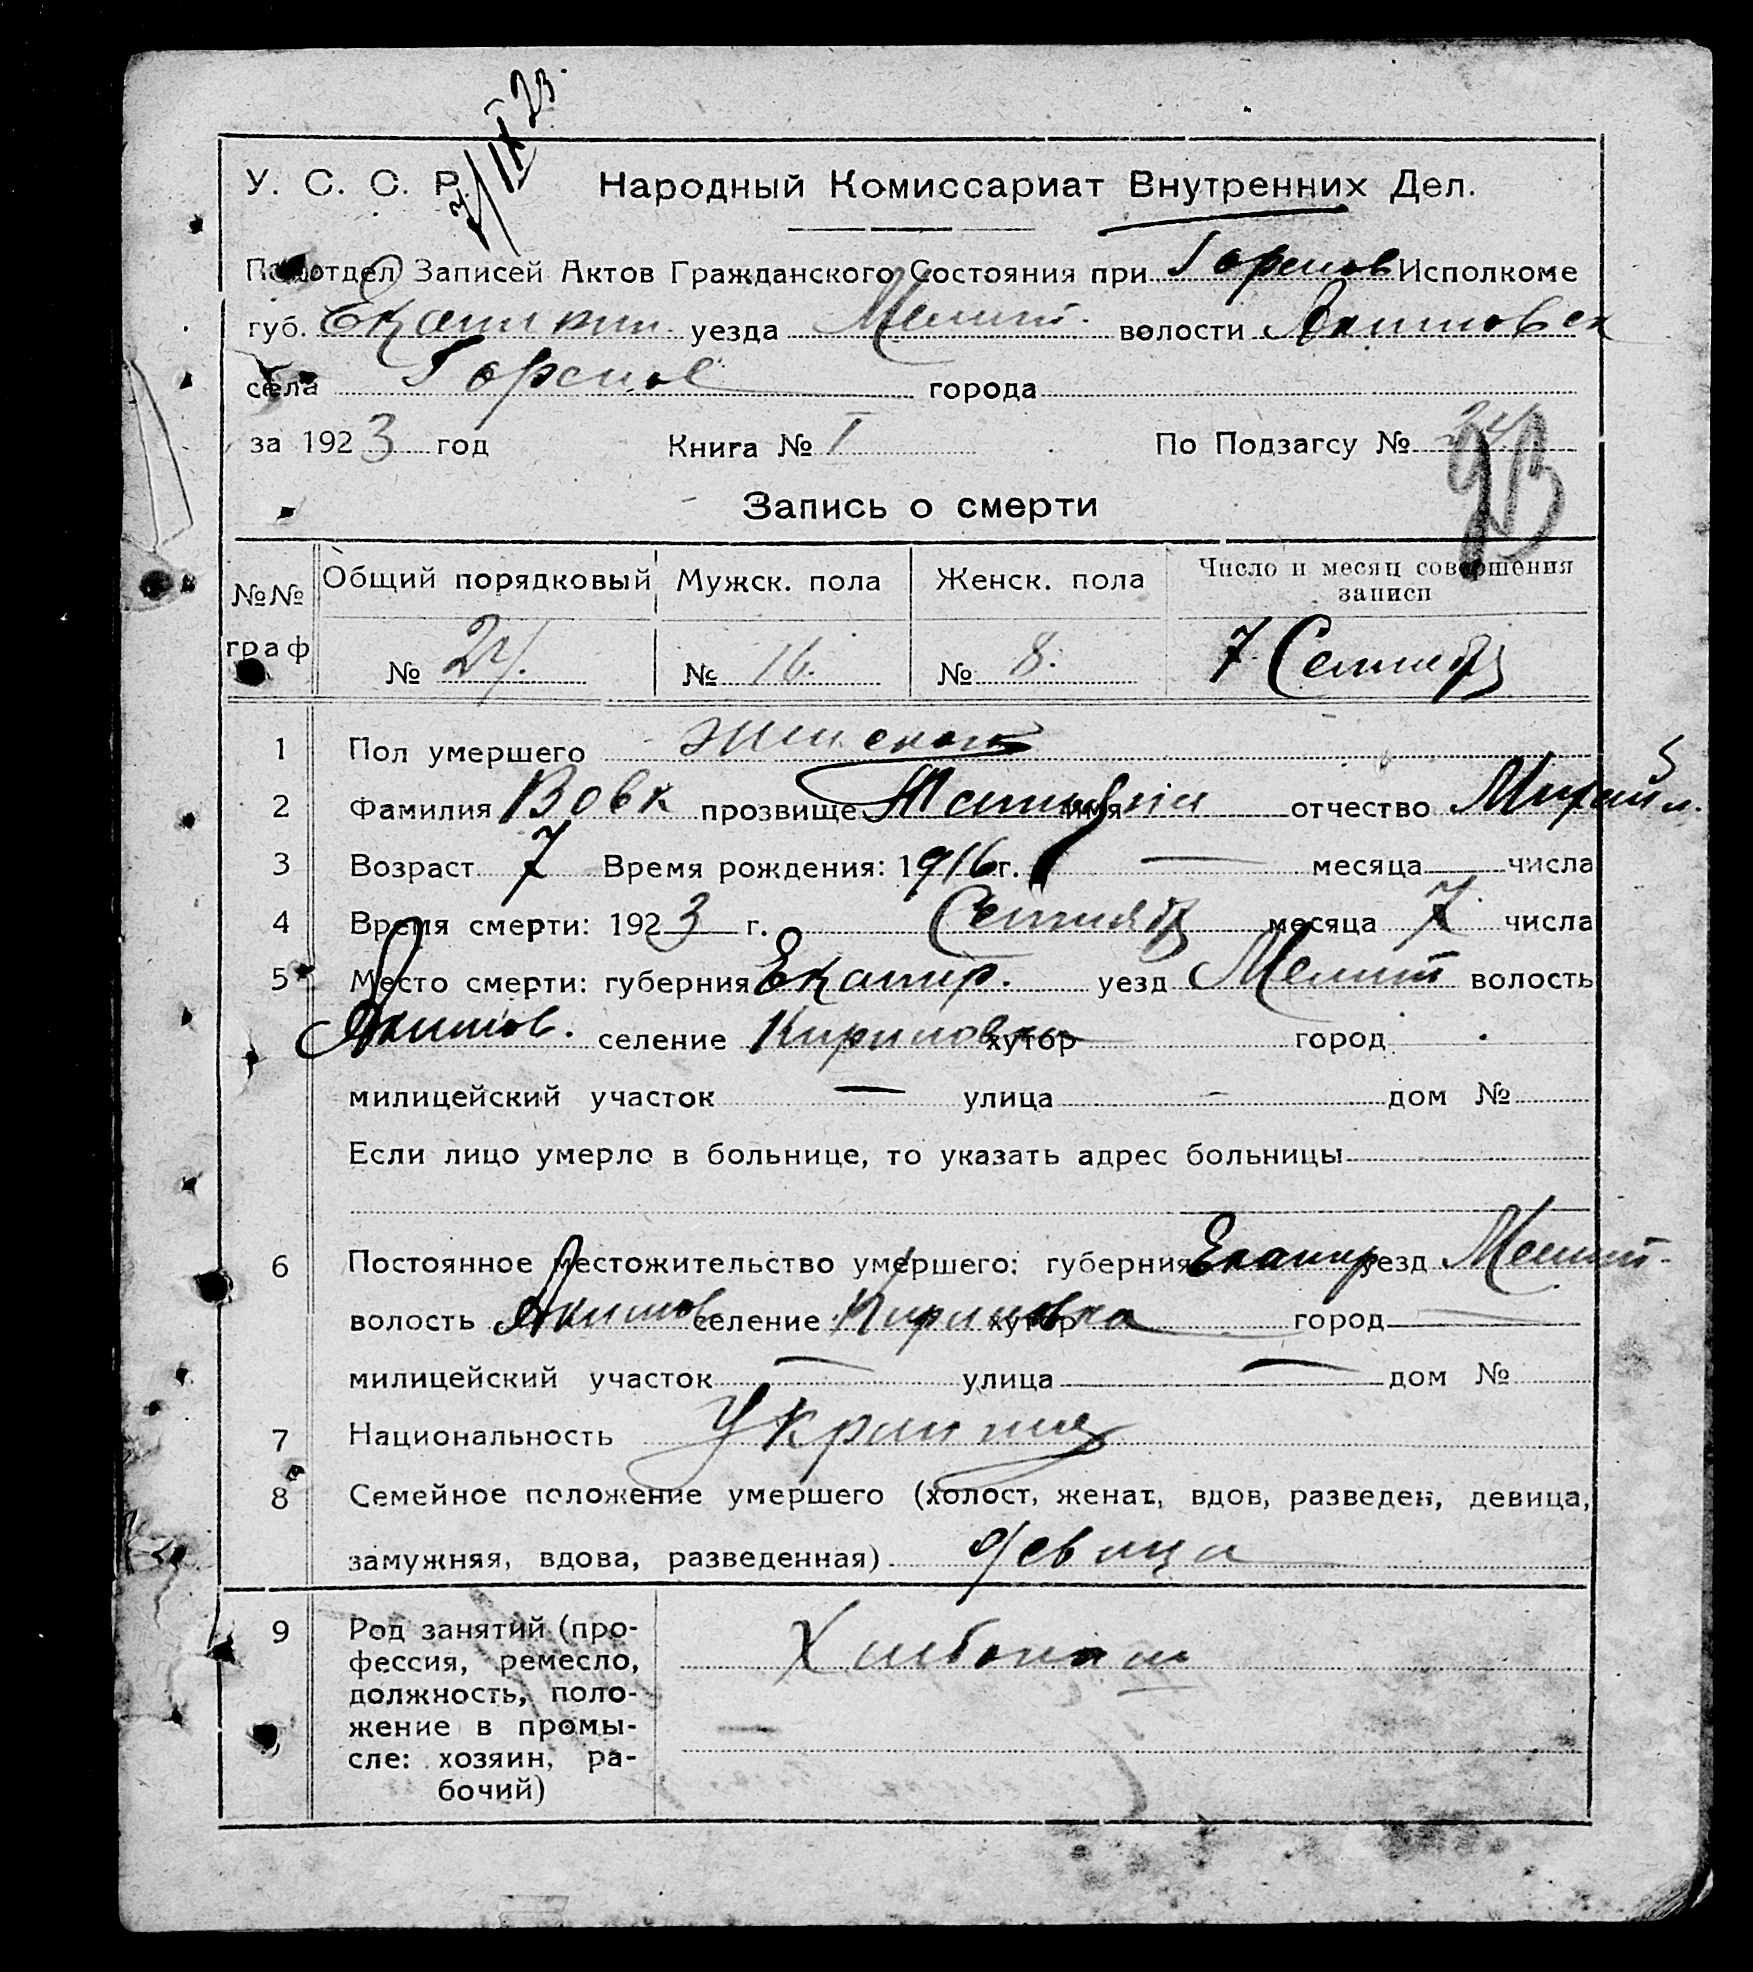 7/IX 23.
У. С. С. Р. Народный Комиссариат Внутренних Дел.
Подотдел Записей Актов Гражданского Состояния при Исполкоме
губ. уезда Мелит. волости Акимовск
села города
за 1923 год Книга № I По Подзагсу № 24
Запись о смерти
№№ граф Общий порядковый Мужск. пола Женск. пола Число и месяц совершения записи
№ 24. № 16. № 8. 7 Сентябр
1 Пол умершего женского
2 Фамилия Вовк прозвище имя отчество Михайл.
3 Возраст 7 Время рождения: 1916 г. — месяца числа
4 Время смерти: 1923 г. Сентябр месяца 7 числа
5 Место смерти: губерния Екатер. уезд Мелит волость
Акимов. селение Кириловка хутор город
милицейский участок — улица - дом №
Если лицо умерло в больнице, то указать адрес больницы
6 Постоянное местожительство умершего: губерния Екатер уезд Мелит.
волость Акимов селение Кириловка хутор город —
милицейский участок — улица — дом №
7 Национальность
8 Семейное положение умершего (холост, женат, вдов, разведен, девица,
замужняя, вдова, разведенная) девица
9 Род занятий (про-
фессия, ремесло,
должность, поло-
жение в промы-
сле: хозяин, ра-
бочий)